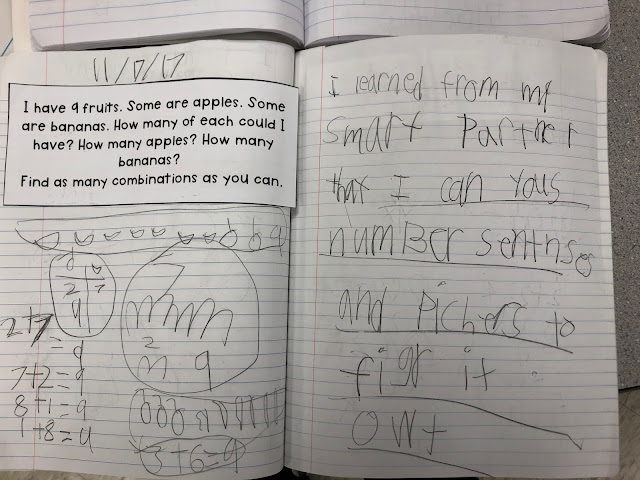 11/17/17
I have 9 fruits. Some are apples. Some
are bananas. How many of each could I
have? How many apples? How many
bananas?
Find as many combinations as you can.
2 7
9
2+7
=9
7+2=9
8+1=9
1+8=9
7
2
9
3+6=9
I learned from my
smart Partner
that I can yous
numBer sentnses
and Pichers to
figr it
owt